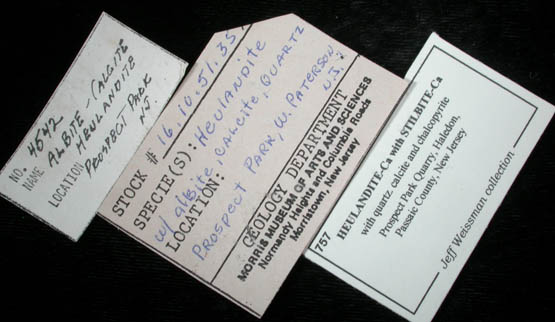 NO. 4642
NAME ALBITE - CALCITE
HEULANDITE
LOCATION PROSPECT PARK
NJ.
STOCK # 16.10.51.35
SPECIE(S): HEULANDITE
w/ albite, CALCITE, QUARTZ
LOCATION:
PROSPECT PARK, W. PATERSON
N.J.
GEOLOGY DEPARTMENT
MORRIS MUSEUM OF ARTS AND SCIENCES
Normandy Heights and Columbia Roads
Morristown, New Jersey
757
HEULANDITE-Ca with STILBITE-Ca
with quartz, calcite and chalcopyrite
Prospect Park Quarry, Haledon,
Passaic County, New Jersey
Jeff Weissman collection